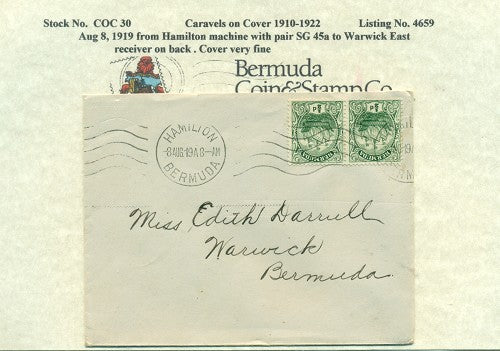 Stock No. COC 30 Caravels on Cover 1910-1922 Listing No. 4659
Aug 8, 1919 from Hamilton machine with pair SG 45a to Warwick East
receiver on back . Cover very fine
Bermuda
Coin&Stamp Co
HAMILTON
-8 AUG 19 A 8-AM
BERMUDA
Miss Edith Darrell
Warwick
Bermuda.